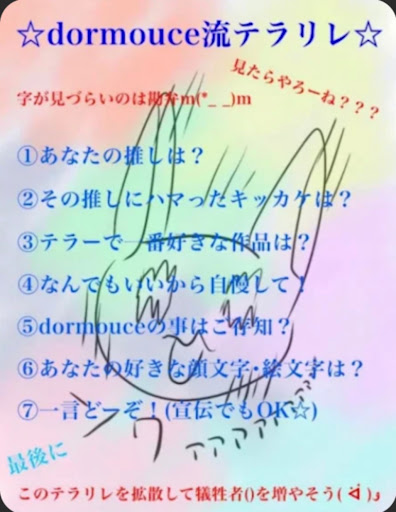 ☆dormouce流テラリレ☆
見たらやろーね???
字が見づらいのは勘弁m(*_ _)m
①あなたの推しは?
②その推しにハマったキッカケは?
③テラーで一番好きな作品は?
④なんでもいいから自慢して!
⑤dormouceの事はご存知?
⑥あなたの好きな顔文字・絵文字は?
⑦一言どーぞ!(宣伝でもOK☆)
アアアアアア
最後に
このテラリレを拡散して犠牲者()を増やそう( ᐛ )و